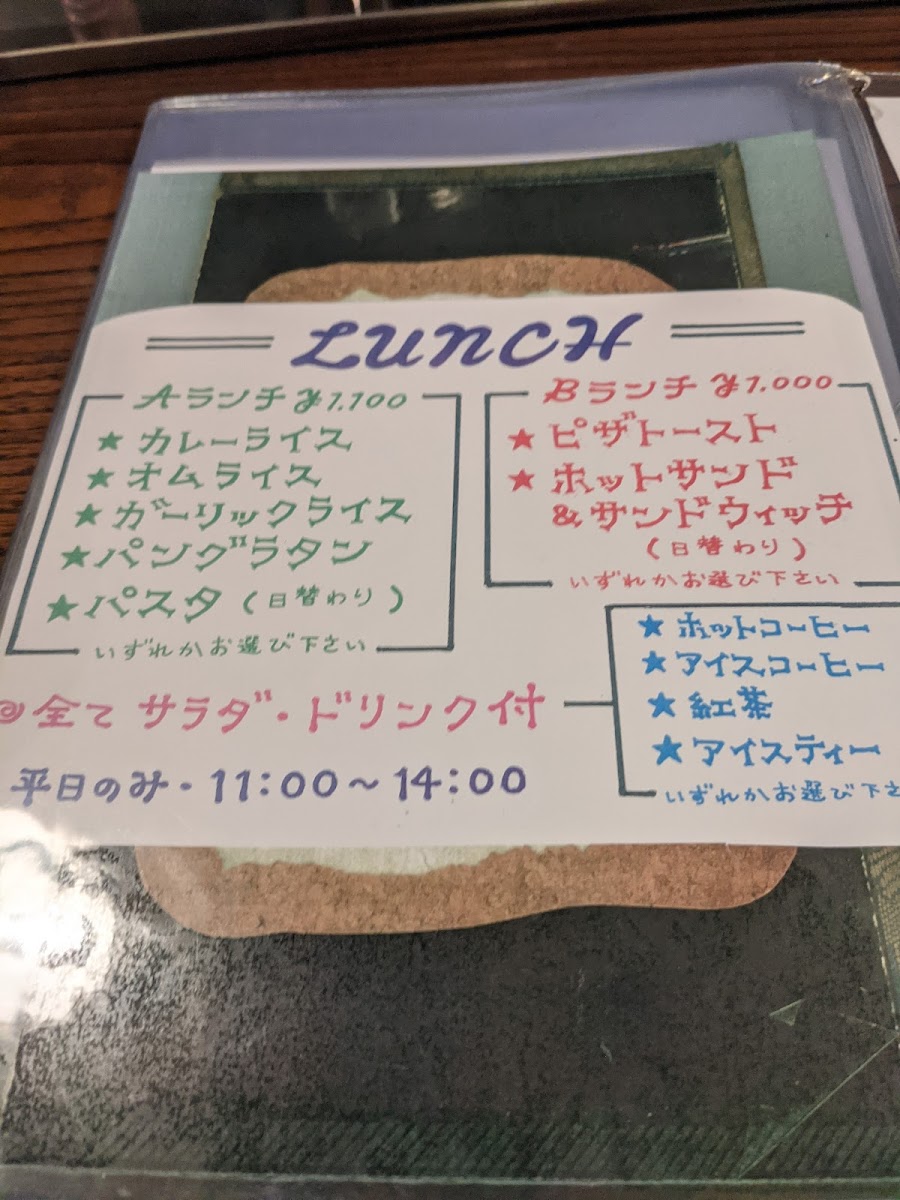 LUNCH
Aランチ ¥1,100
★カレーライス
★オムライス
★ガーリックライス
★パングラタン
★パスタ(日替わり)
いずれかお選び下さい
Bランチ ¥1,000
★ピザトースト
★ホットサンド
&サンドウィッチ
(日替わり)
いずれかお選び下さい
◎全て サラダ・ドリンク付
★ホットコーヒー
★アイスコーヒー
★紅茶
★アイスティー
いずれかお選び下さ
平日のみ・11:00〜14:00